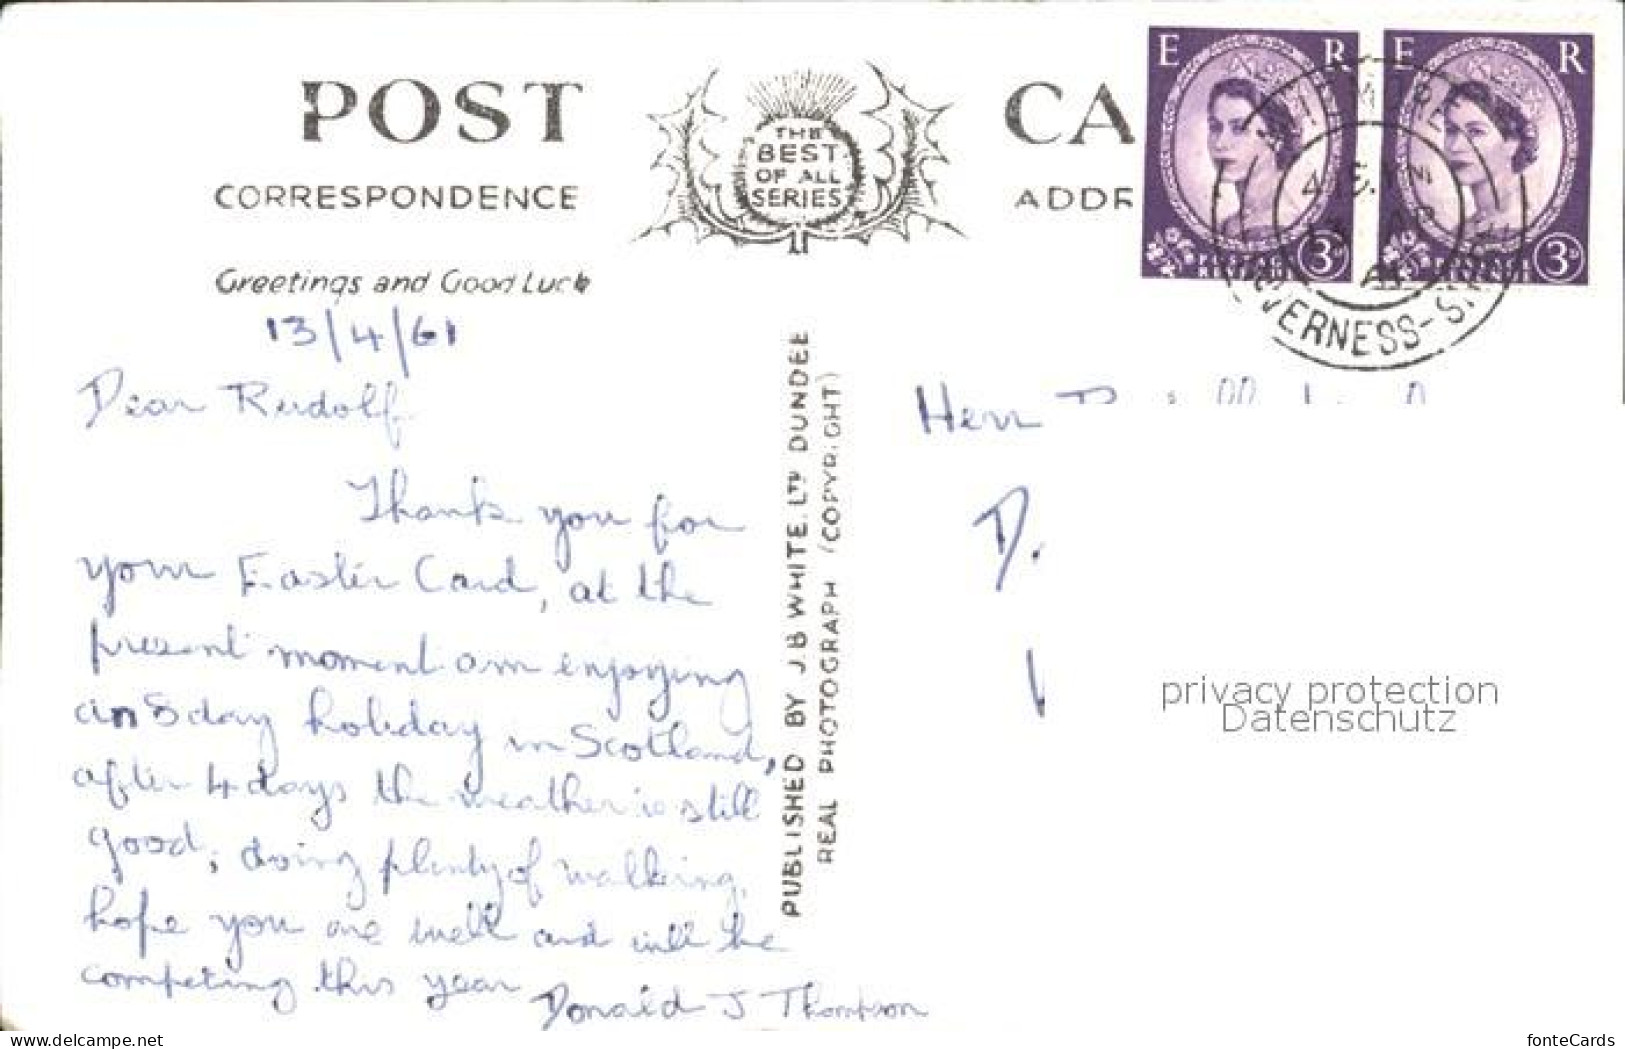 POST CA
THE
BEST
OF ALL
SERIES
CORRESPONDENCE
ADDR
Greetings and Good Luck
13/4/61
Dear Rudolf
Thank you for
your Easter Card, at the
present moment am enjoying
an 8 day holiday in Scotland,
after 4 days the weather is still
good, doing plenty of walking,
hope you are well and will be
competing this year
Donald J Thompson
PUBLISHED BY J.B WHITE. LTD DUNDEE
REAL PHOTOGRAPH (COPYRIGHT)
E R
3D
E R
3D
VERNESS-S
Herr
D.
privacy protection
Datenschutz
www.delcampe.net
fonteCards